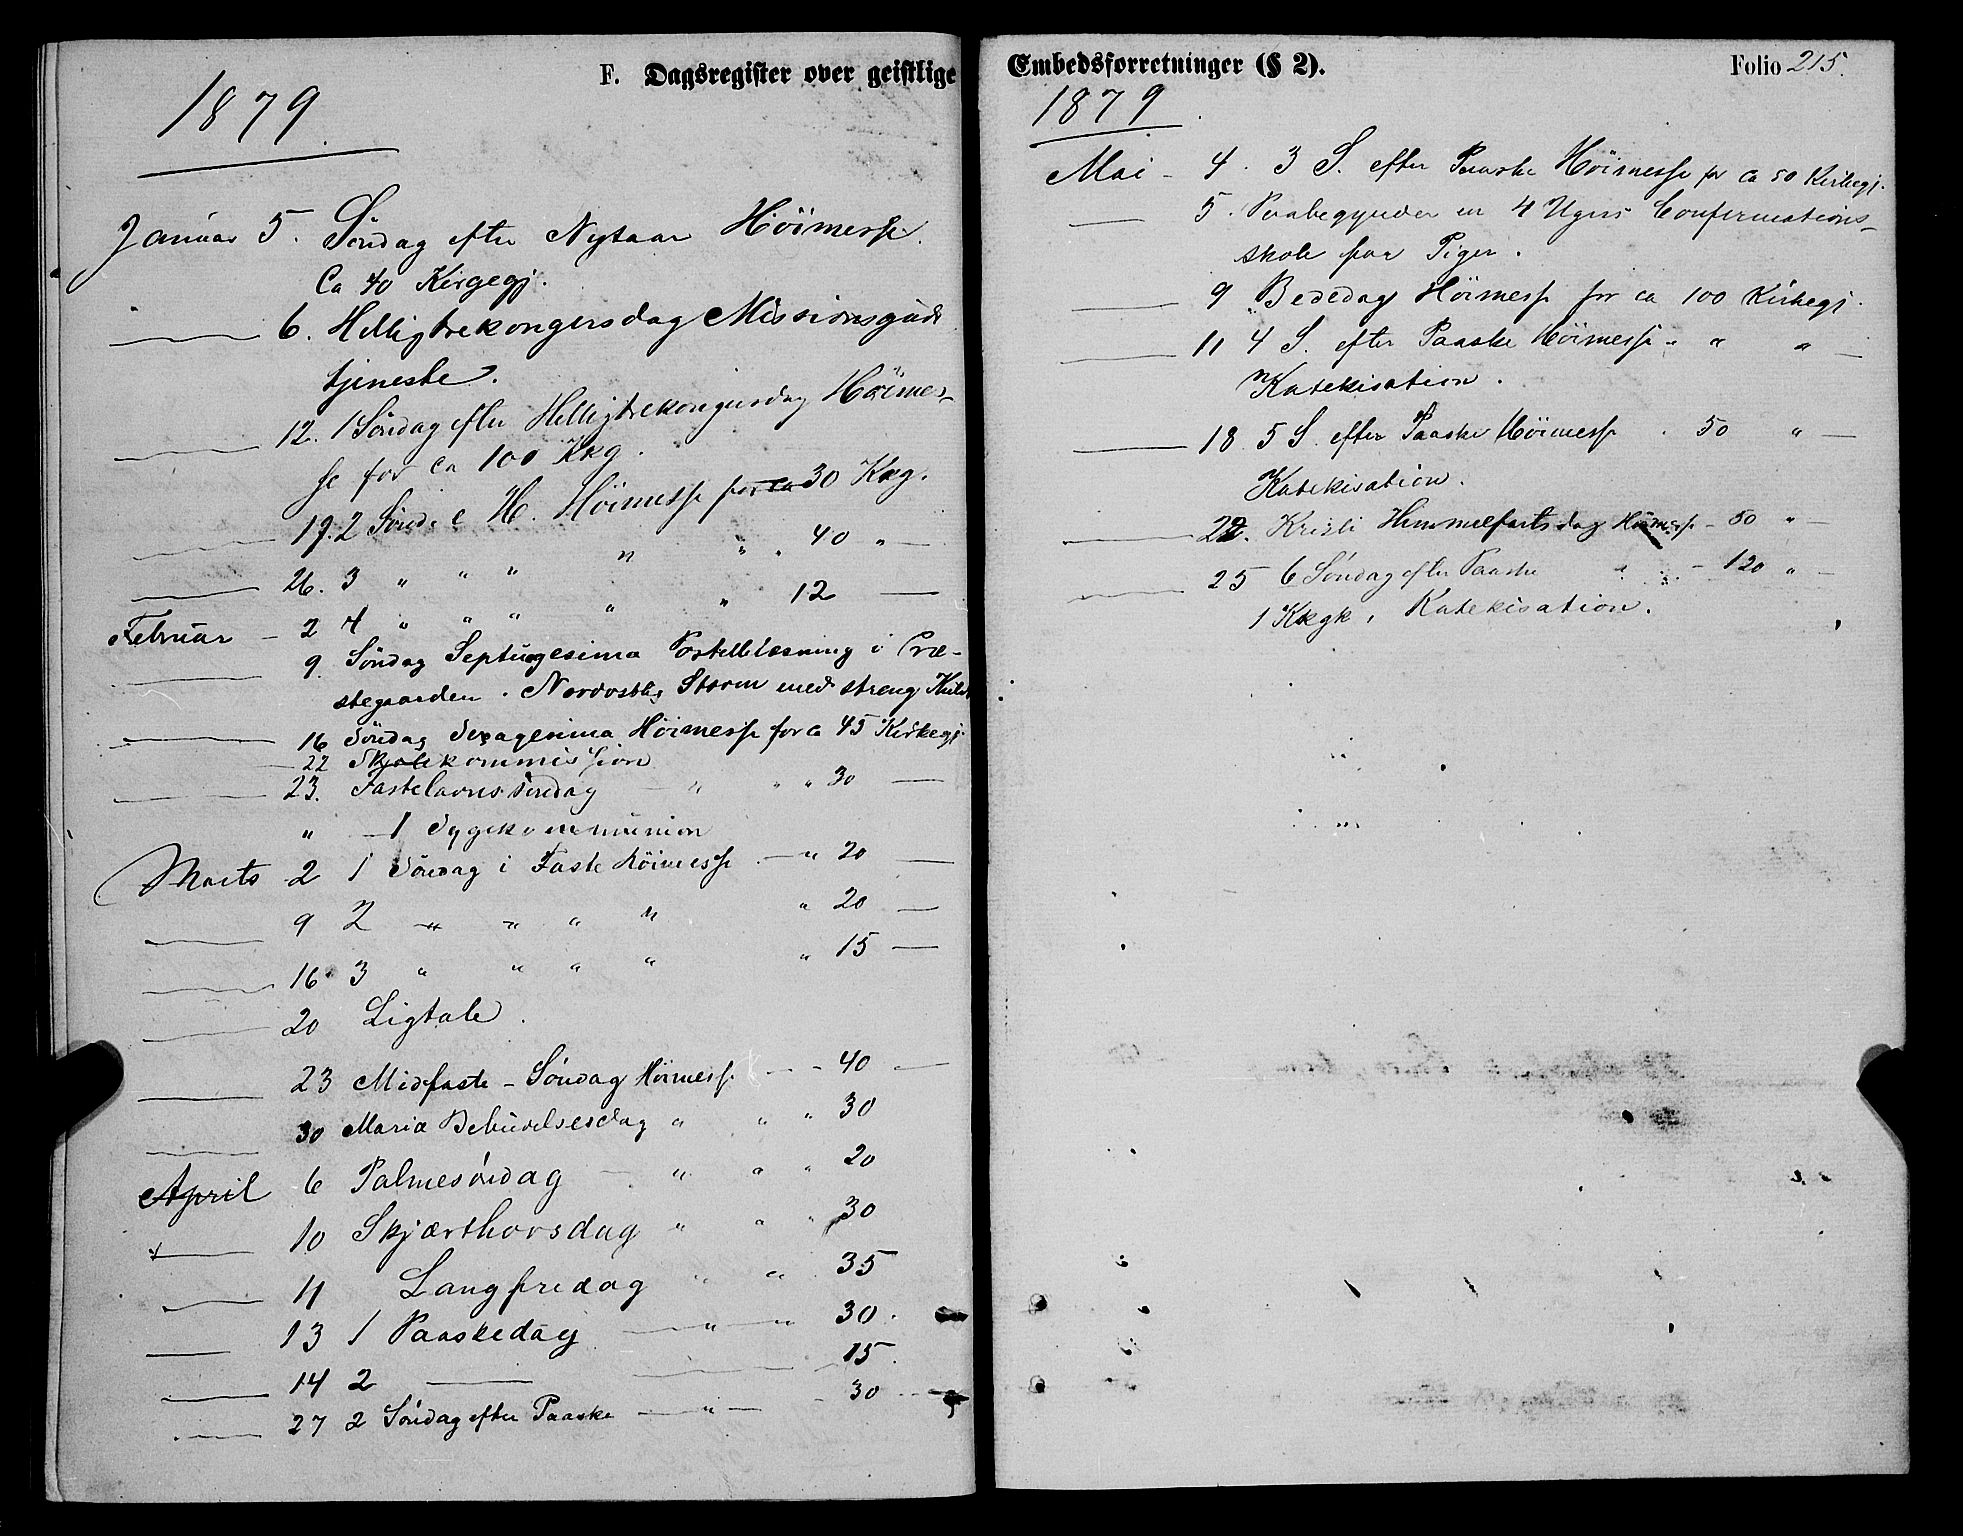 F. Dagsregister over geistlige
1879.
Januar 5. Söndag efter Nytaar Höimesse.
Ca 40 Kirgegj.
— 6. Helligtrekongersdag Missionsguds
tjeneste.
— 12. 1 Söndag efter Helligtrekongersdag Höimes-
se for ca 100 Kkg.
— 19. 2 Sönd. e H. Höimesse for ca 30 Kkg.
— 26. 3 " " " " " . 40 " —
Februar — 2 4 " " " " " 12 —
— 9. Söndag Septuagesima Postillæsning i Præ-
stegaarden. Nordostlig Storm med streng Kulde
— 16 Söndag Sexagesima Höimesse for ca 45 Kirkegj.
— 22 Skolekommission
— 23. Fastelavnssöndag — " " " 30 —
" — 1 Sygekommunion
Marts 2 1 Söndag i Faste Höimesse — " 20 —
— 9 2 " " " " " 20 —
— 16 3 " " " " " 15 —
— 20 Ligtale.
— 23 Midfaste - Söndag Höimesse — - 40 —
— 30 Maria Bebudelsesdag " " " 30
April 6 Palmesöndag — " " " 20
— 10 Skjærthorsdag " " " 30
— 11 Langfredag " " 35
— 13 1 Paaskedag — " — " 30.
— 14 2 — — 15.
— 27 2 Söndag efter Paaske — " — - 30
Embedsforretninger (§ 2).
Folio 215.
1879.
Mai - 4. 3 S. efter Paaske Höimesse for ca 50 Kirkegj.
— 5. Paabegynder en 4 Ugers Confirmations-
skole for Piger.
— 9 Bededag Höimesse for ca 100 Kirkegj.
— 11 4 S. efter Paaske Höimesse " " " —
Katekisation.
— 18 5 S. efter Paaske Höimesse . 50 " —
Katekisation.
— 22. Kristi Himmelfartsdag Höimesse - 50 " —
— 25 6 Söndag efter Paaske " " - 120 " —
1 Kkgk, Katekisation.